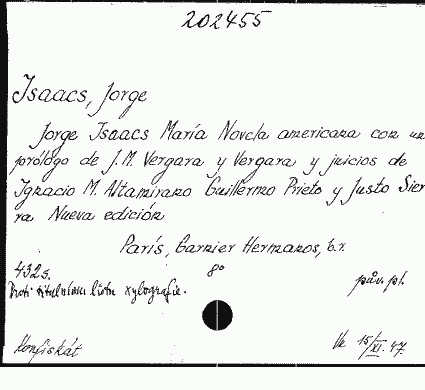 202455
Isaacs, Jorge
Jorge Isaacs María Novela americana con un
prólogo de J.M. Vergara y Vergara y juicios de
Ignacio M. Altamirano Guillermo Prieto y Justo Sier-
ra Nueva edición
París, Garnier Hermanos, b.r.
432s. 8° pův. pl.
Proti titulnímu listu xylografie.
Konfiskát Vk 15/XI. 47.